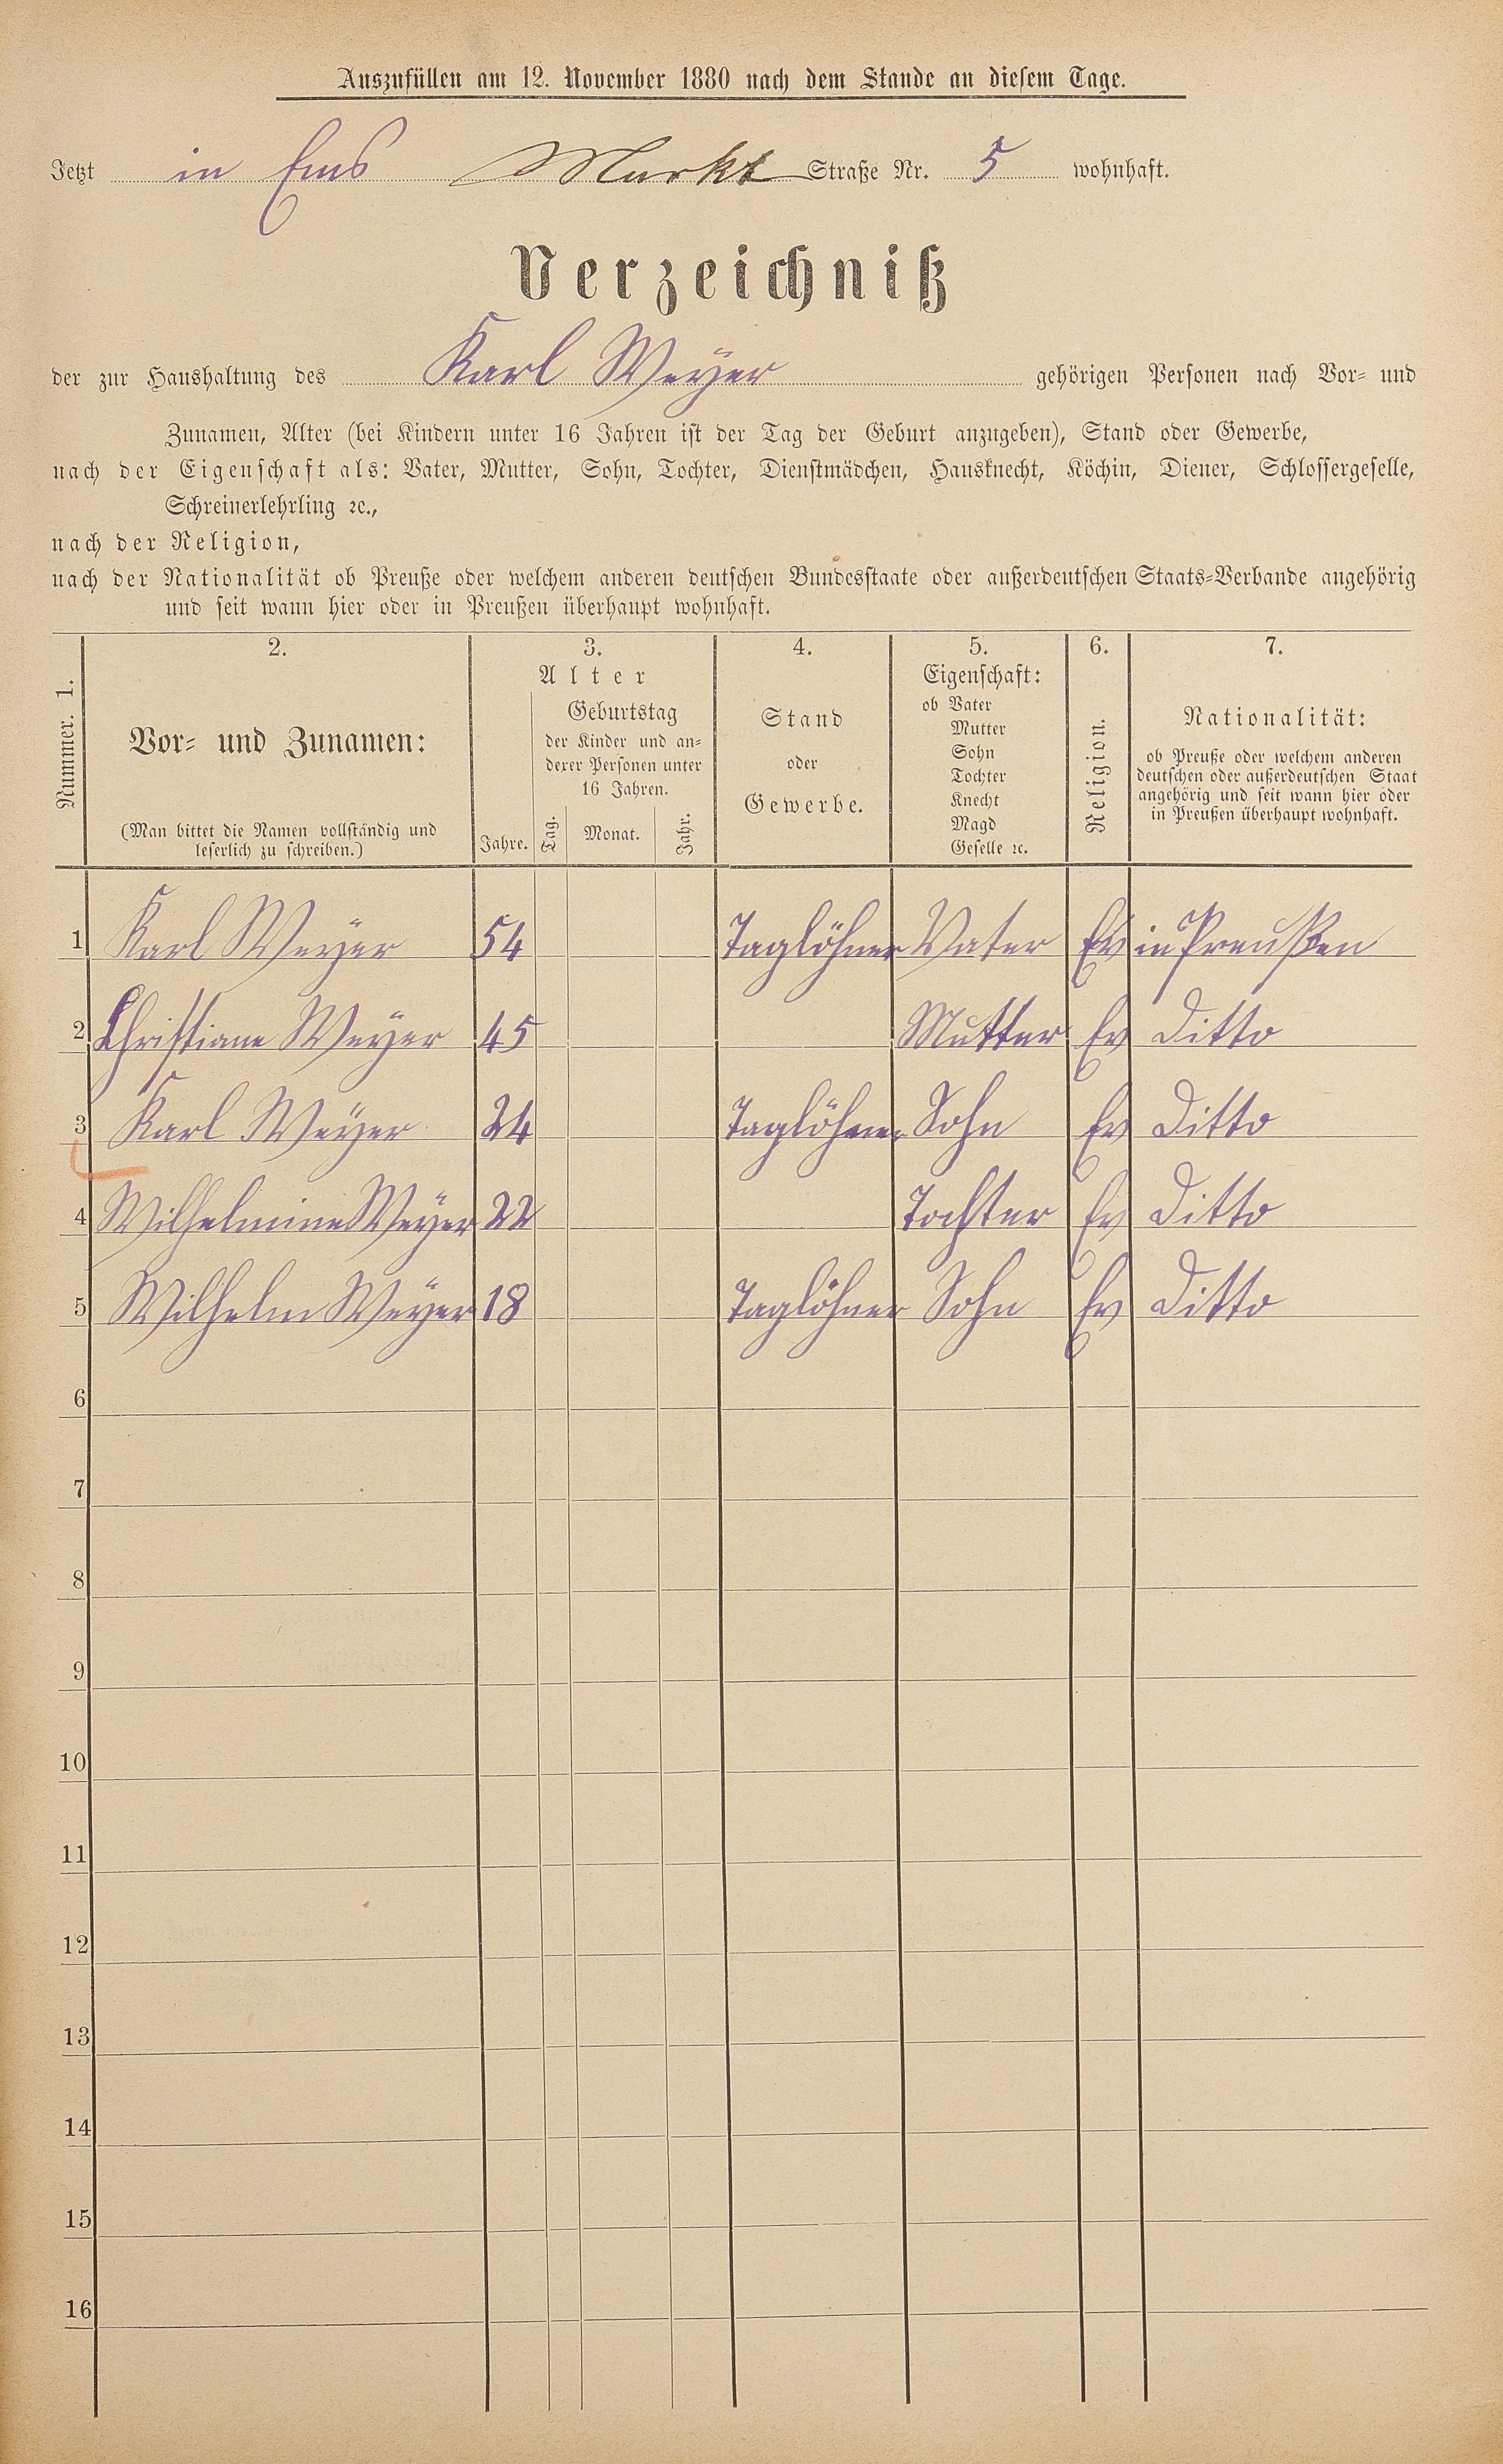 Auszufüllen am 12. November 1880 nach dem Stande an diesem Tage.
Jetzt in Ems Markt Straße Nr. 5 wohnhaft.
Verzeichniß
der zur Haushaltung des Karl Weyer gehörigen Personen nach Vor- und
Zunamen, Alter (bei Kindern unter 16 Jahren ist der Tag der Geburt anzugeben), Stand oder Gewerbe,
nach der Eigenschaft als: Vater, Mutter, Sohn, Tochter, Dienstmädchen, Hausknecht, Köchin, Diener, Schlossergeselle,
Schreinerlehrling ꝛc.,
nach der Religion,
nach der Nationalität ob Preuße oder welchem anderen deutschen Bundesstaate oder außerdeutschen Staats-Verbande angehörig
und seit wann hier oder in Preußen überhaupt wohnhaft.
Nummer. 1.
2.
Vor- und Zunamen:
(Man bittet die Namen vollständig und
leserlich zu schreiben.)
3.
Alter
Jahre.
Geburtstag
der Kinder und an-
derer Personen unter
16 Jahren.
Tag. Monat. Jahr.
4.
Stand
oder
Gewerbe.
5.
Eigenschaft:
ob Vater
Mutter
Sohn
Tochter
Knecht
Magd
Geselle ꝛc.
6.
Religion.
7.
Nationalität:
ob Preuße oder welchem anderen
deutschen oder außerdeutschen Staat
angehörig und seit wann hier oder
in Preußen überhaupt wohnhaft.
1 Karl Weyer 54 Taglöhner Vater Ev in Preußen
2 Christiane Weyer 45 Mutter Ev Ditto
3 Karl Weyer 24 Taglöhner Sohn Ev Ditto
4 Wilhelmine Weyer 22 Tochter Ev Ditto
5 Wilhelm Weyer 18 Taglöhner Sohn Ev Ditto
6
7
8
9
10
11
12
13
14
15
16